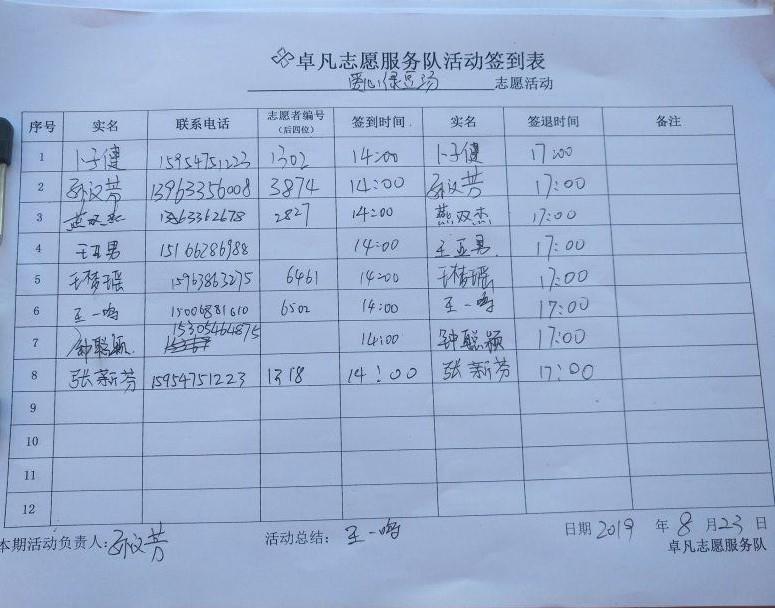 卓凡志愿服务队活动签到表
爱心绿豆汤 志愿活动
序号 实名 联系电话 志愿者编号（后四位） 签到时间 实名 签退时间 备注
1 卜子健 15954751223 1302 14:00 卜子健 17:00
2 孙议芳 13963356008 3874 14:00 孙议芳 17:00
3 燕双杰 13563362678 2827 14:00 燕双杰 17:00
4 王亚男 15166286988 14:00 王亚男 17:00
5 王梦瑶 15963863275 6461 14:00 王梦瑶 17:00
6 王一鸣 15006881610 6502 14:00 王一鸣 17:00
7 钟聪颖 15305464875 14:00 钟聪颖 17:00
8 张新芬 15954751223 1318 14:00 张新芬 17:00
9
10
11
12
本期活动负责人:孙议芳 活动总结: 王一鸣 日期 2019 年 8 月 23 日
卓凡志愿服务队